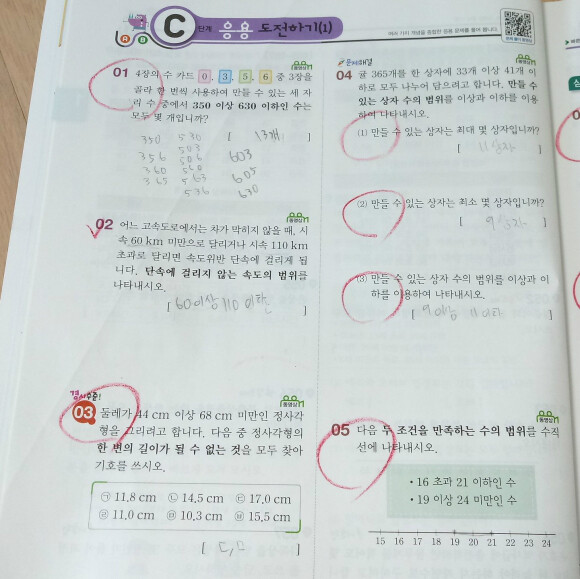 A B C 단계 응용 도전하기(1)
01 4장의 수 카드 0, 3, 5, 6 중 3장을
골라 한 번씩 사용하여 만들 수 있는 세 자
리 수 중에서 350 이상 630 이하인 수는
모두 몇 개입니까?
[ 13개 ]
350 530
503
356 506 603
360 560
365 563 605
536 630
02 어느 고속도로에서는 차가 막히지 않을 때, 시
속 60 km 미만으로 달리거나 시속 110 km
초과로 달리면 속도위반 단속에 걸리게 됩
니다. 단속에 걸리지 않는 속도의 범위를
나타내시오.
[ 60이상 110이하 ]
경시수준!
03 둘레가 44 cm 이상 68 cm 미만인 정사각
형을 그리려고 합니다. 다음 중 정사각형의
한 변의 길이가 될 수 없는 것을 모두 찾아
기호를 쓰시오.
㉠ 11.8 cm ㉡ 14.5 cm ㉢ 17.0 cm
㉣ 11.0 cm ㉤ 10.3 cm ㉥ 15.5 cm
[ ㄷ, ㅁ ]
문제해결
동영상
04 귤 365개를 한 상자에 33개 이상 41개 이
하로 모두 나누어 담으려고 합니다. 만들 수
있는 상자 수의 범위를 이상과 이하를 이용
하여 나타내시오.
(1) 만들 수 있는 상자는 최대 몇 상자입니까?
[ 11상자 ]
(2) 만들 수 있는 상자는 최소 몇 상자입니까?
[ 9상자 ]
(3) 만들 수 있는 상자 수의 범위를 이상과 이
하를 이용하여 나타내시오.
[ 9이상 11이하 ]
동영상
05 다음 두 조건을 만족하는 수의 범위를 수직
선에 나타내시오.
• 16 초과 21 이하인 수
• 19 이상 24 미만인 수
15 16 17 18 19 20 21 22 23 24